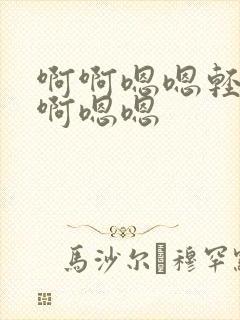 啊啊嗯嗯軽
啊嗯嗯
馬沙尔 穆罕